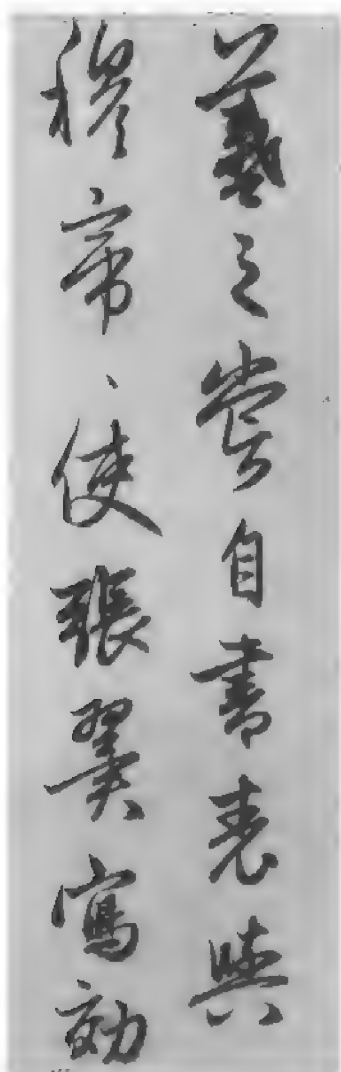 羲之嘗自書表與
穆帝、使張翼寫効